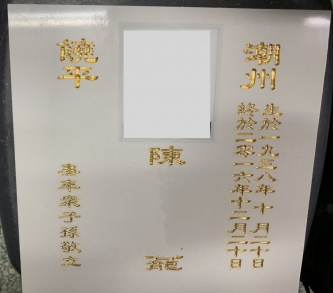 潮州
生於一九三八年十月二十日
終於二零一六年十二月二十日
陳
饒平
壽年衆子孫敬立